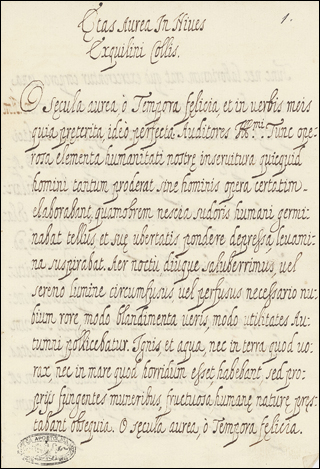 1.
Etas Aurea In Niues
Exquilini Collis.
O secula aurea ò Tempora felicia, et in uerbis meis
quia preterita, ideò perfecta Auditores Ill.mi. Tunc ope-
rosa elementa humanitati nostre inseruitura quicquid
homini tantum proderat sine hominis opera certatim
elaborabant, quamobrem nescia sudoris humani germi
nabat tellus, et suę ubertatis pondere depressa leuami-
na suspirabat. Aer noctu diuque saluberrimus, uel
sereno lumine circumfusus uel perfusus necessario nu-
bium rore, modo blandimenta ueris, modo utilitates Au-
tumni pollicebatur. Ignis et aqua, nec in terra quod uo-
rax, nec in mare quod horridum esset habebant sed pro-
prijs fungentes muneribus, fructuosa humanę naturę pręs-
tabant obsequia. O sęcula aurea, ò Tempora felicia.